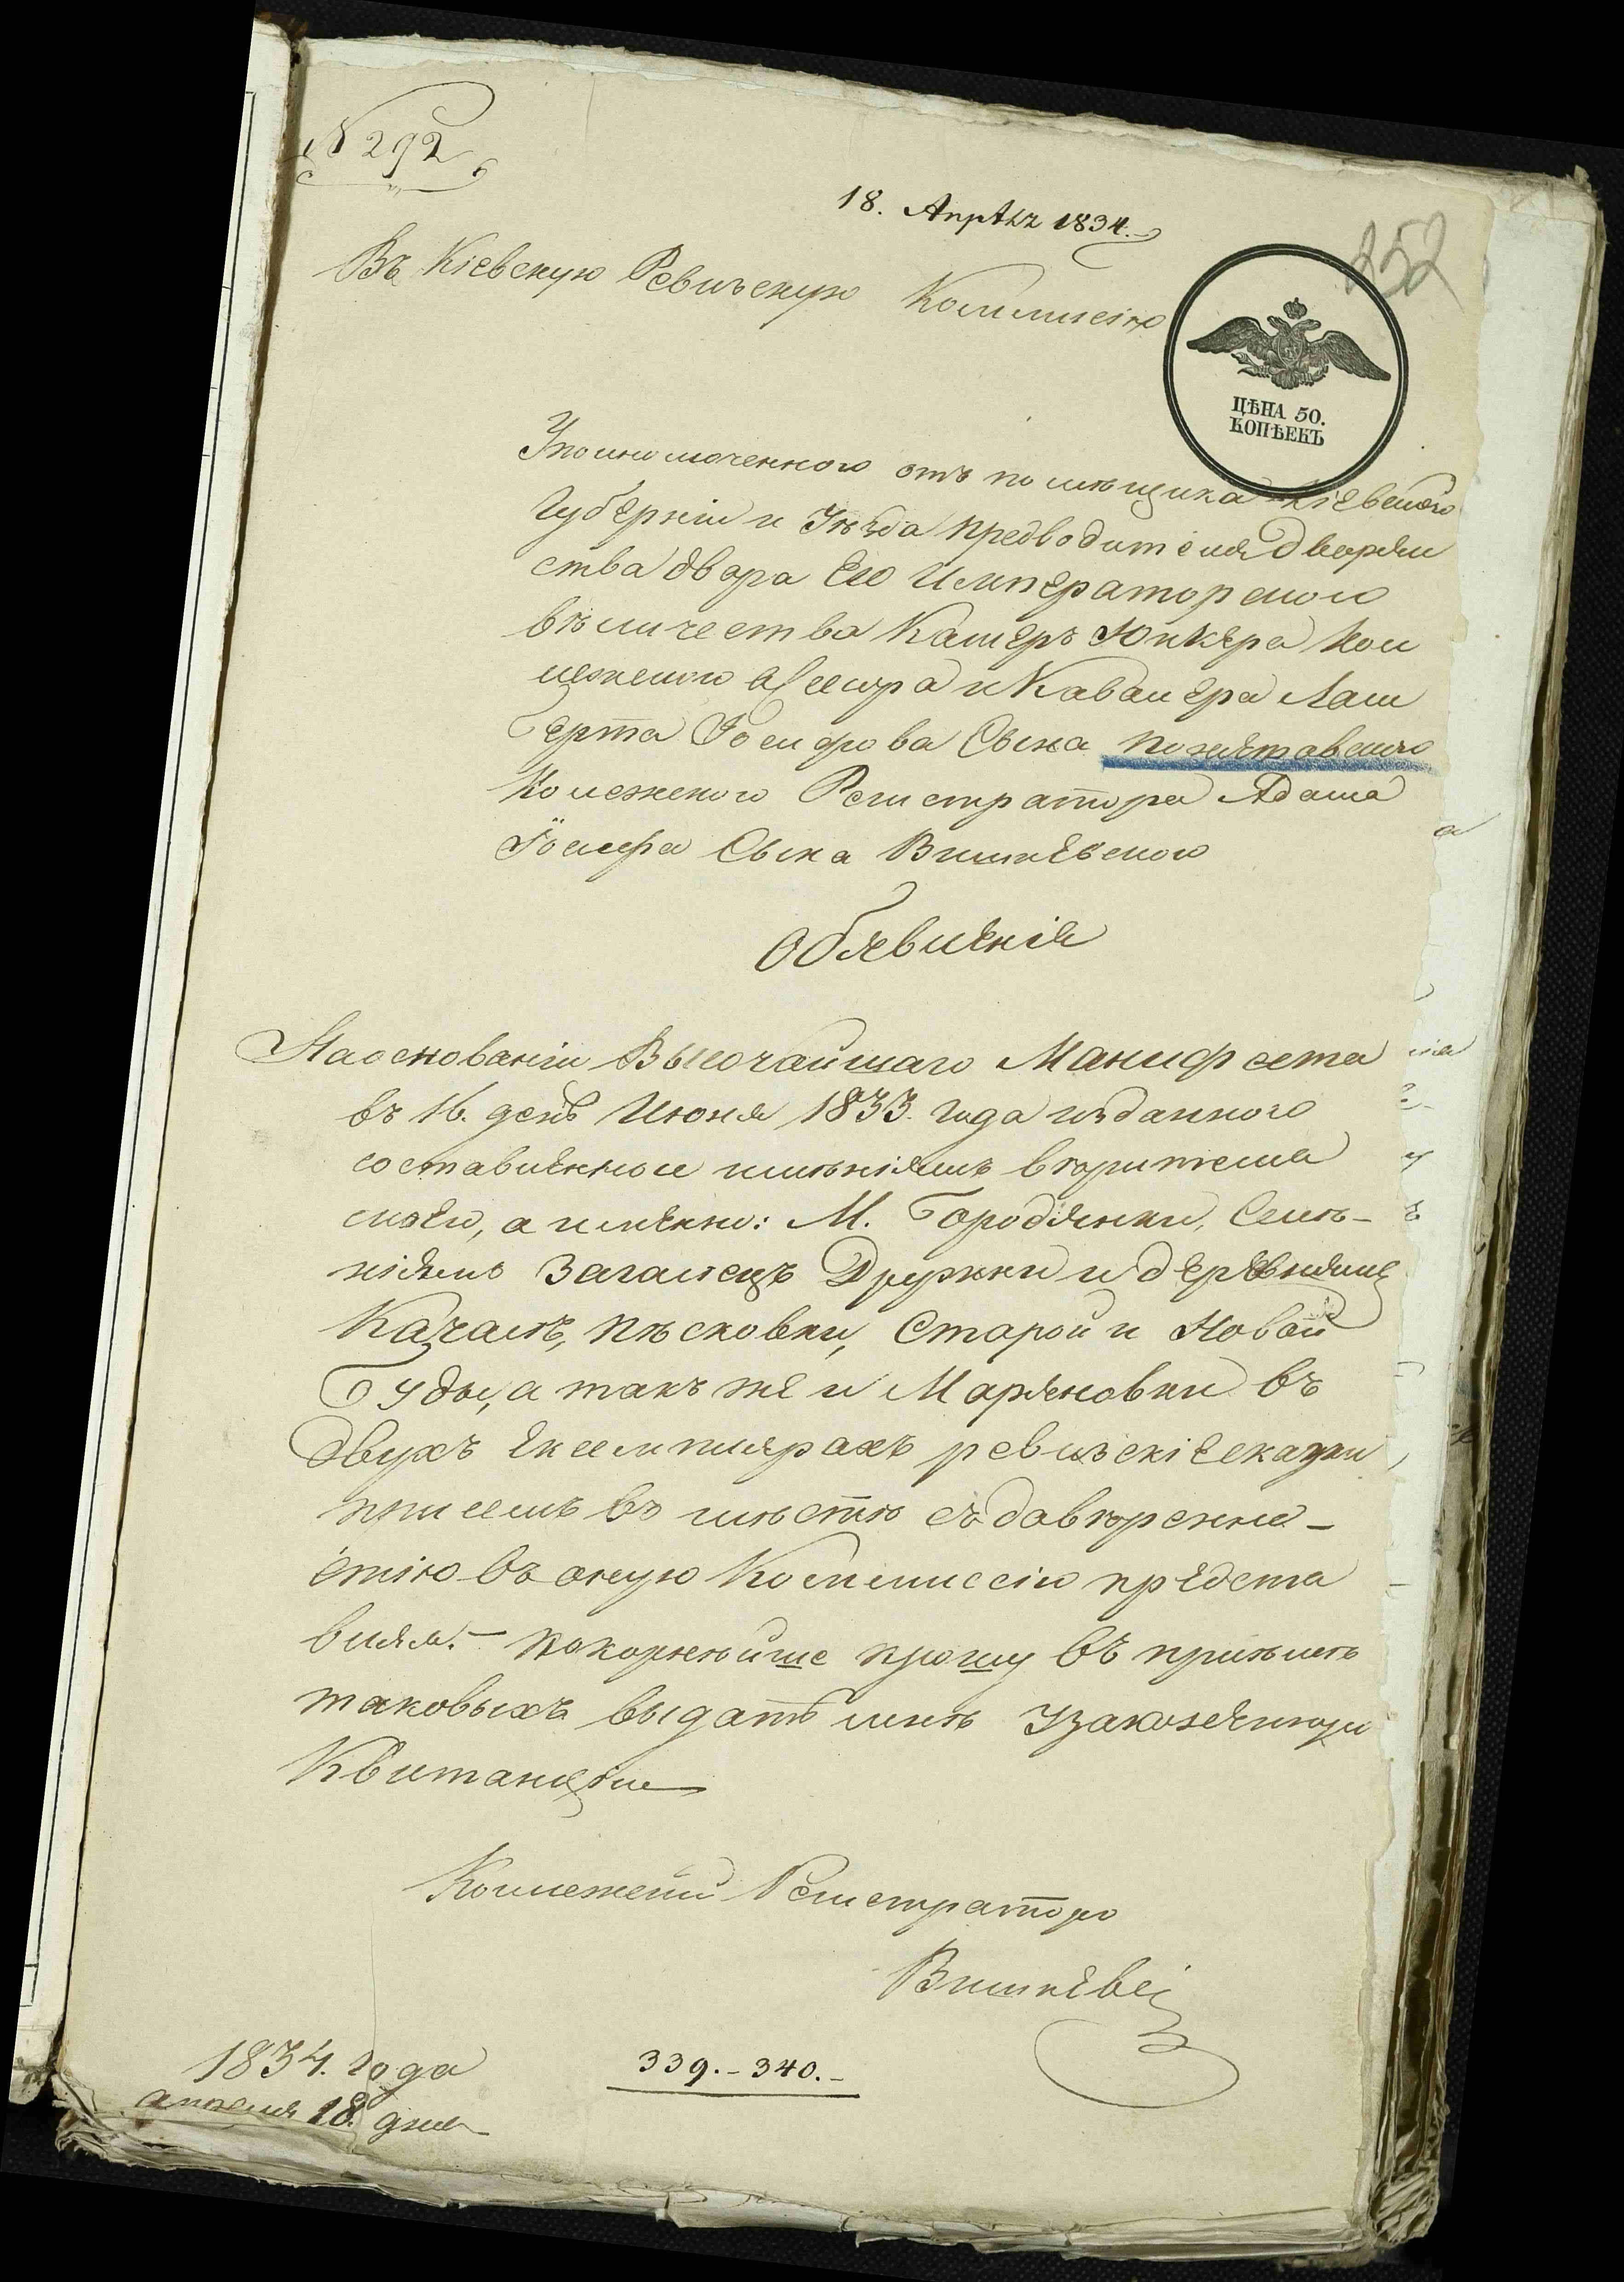 № 292
18. Апрѣля 1834.
252
Въ Кіевскую Ревизскую Коммисію
ЦѢНА 50.
КОПѢЕКЪ
Уполномоченного отъ помѣщика Кіевской
Губерніи и Уѣзда предводителя Дворян
ства двора Его Императорского
вѣличества Камеръ Юнкера Кол
лежского Ассесора и Кавалера Лам
берта Іосифова Сына Понятовского
Колежского Регистратора Адама
Іосифа Сына Вишневского
Обявленія
На основаніи Высочайшаго Манифеста
въ 16. день Июня 1833. года изданного
составленные имѣніямъ вѣрителя
моего, а именно: М. Бородянки, Селѣ-
ніямъ Загалецъ Дружки и деревнямъ
Качалѣ, Пѣсковки, Старой и Новой
Буды, а такъ же и Маряновки въ
двухъ Екземплярахъ ревизскіе сказки
при семъ въ мѣстѣ съ доверенно-
стію въ оную Коммиссію предста
вляя.- Покорнѣйше прошу въ пріѣмѣ
таковыхъ выдать мнѣ Узаконенную
Квитанцію
Коллежскій Регистраторъ
Вишневскі
1834. года
апреля 18. дня
339.-340.-